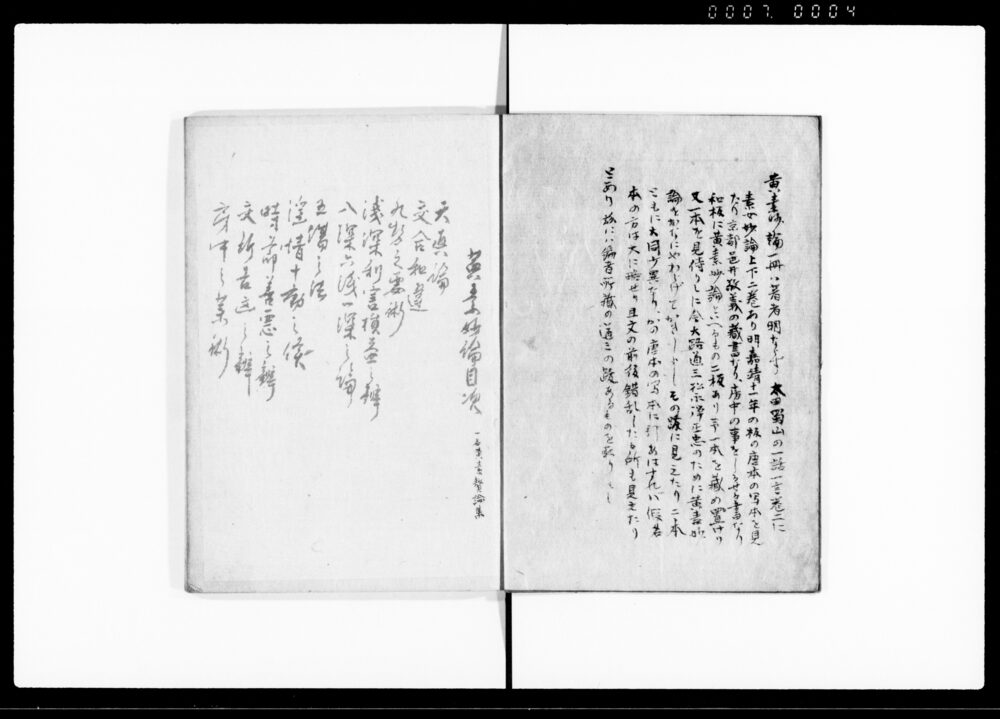 0007 0004
黄素妙論一冊ハ著者明ならす 太田蜀山の一話一言巻二に
素女妙論上下二巻あり明嘉靖十一年の板の唐本の写本を見
たり京都邑井敬義の蔵書なり房中の事をしるせる書なり
和板に黄素妙論といへるもの二板あり 一本を蔵め置けり
又一本を見侍りしに今大路道三 松永澤正忠のために黄素妙
論をかなにやわらけてかきしよし その跋に見えたり二本
ともに大同少異なり かの唐本の写本に引あはすれハ仮名
本の方は大に損せり 且文の前後錯乱したる所も見えたり
とあり 故にハ編者所蔵の道三の跋あるものを
黄素妙論目次
一名黄素賛論集
天真論
交合和違
九勢之要術
浅深利害損益之辨
八深六浅一深之論
五傷之法
淫情十動之候
時節善悪之辨
交析吉凶之辨
房中之薬術